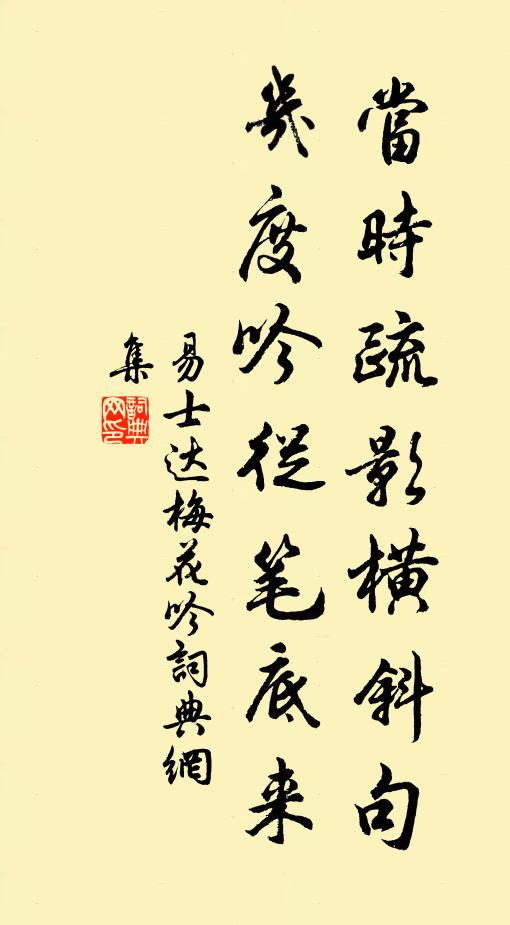 當時疏影橫斜句
幾度吟從笔底来
易士达梅花吟詞典網
集
詞典
网印